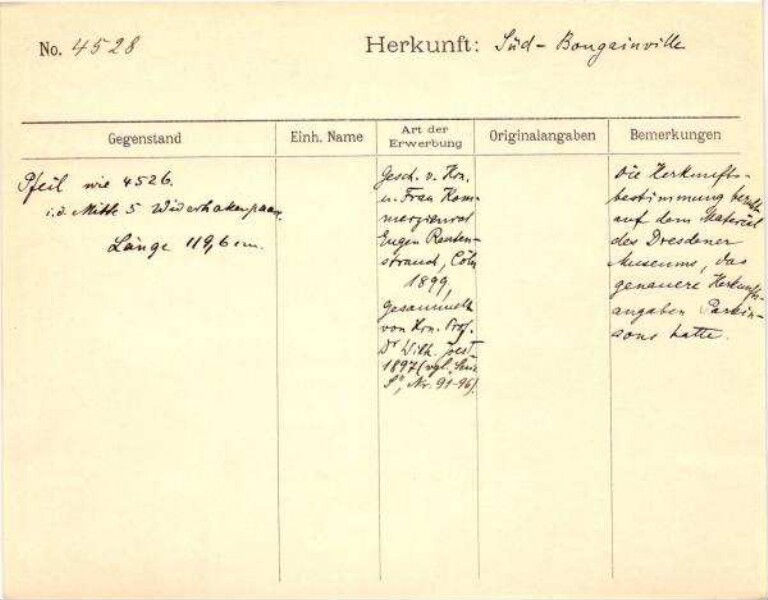 No. 4528
Herkunft: Süd-Bougainville
Gegenstand
Einh. Name
Art der Erwerbung
Originalangaben
Bemerkungen
Pfeil wie 4526.
i.d. Mitte 5 Widerhakenpaare.
Länge 119,6 cm.
Gesch. v. Hrn.
u. Frau Kom-
merzienrat
Eugen Rauten-
strauch, Cöln
1899,
gesammelt
von Hrn. Prof.
Dr Wilh. Joest
1897 (vgl.
Nr. 91-96).
Die Herkunfts-
bestimmung beruht
auf dem Material
des Dresdener
Museums, das
genauere Herkunfts-
angaben Parkin-
sons hatte.